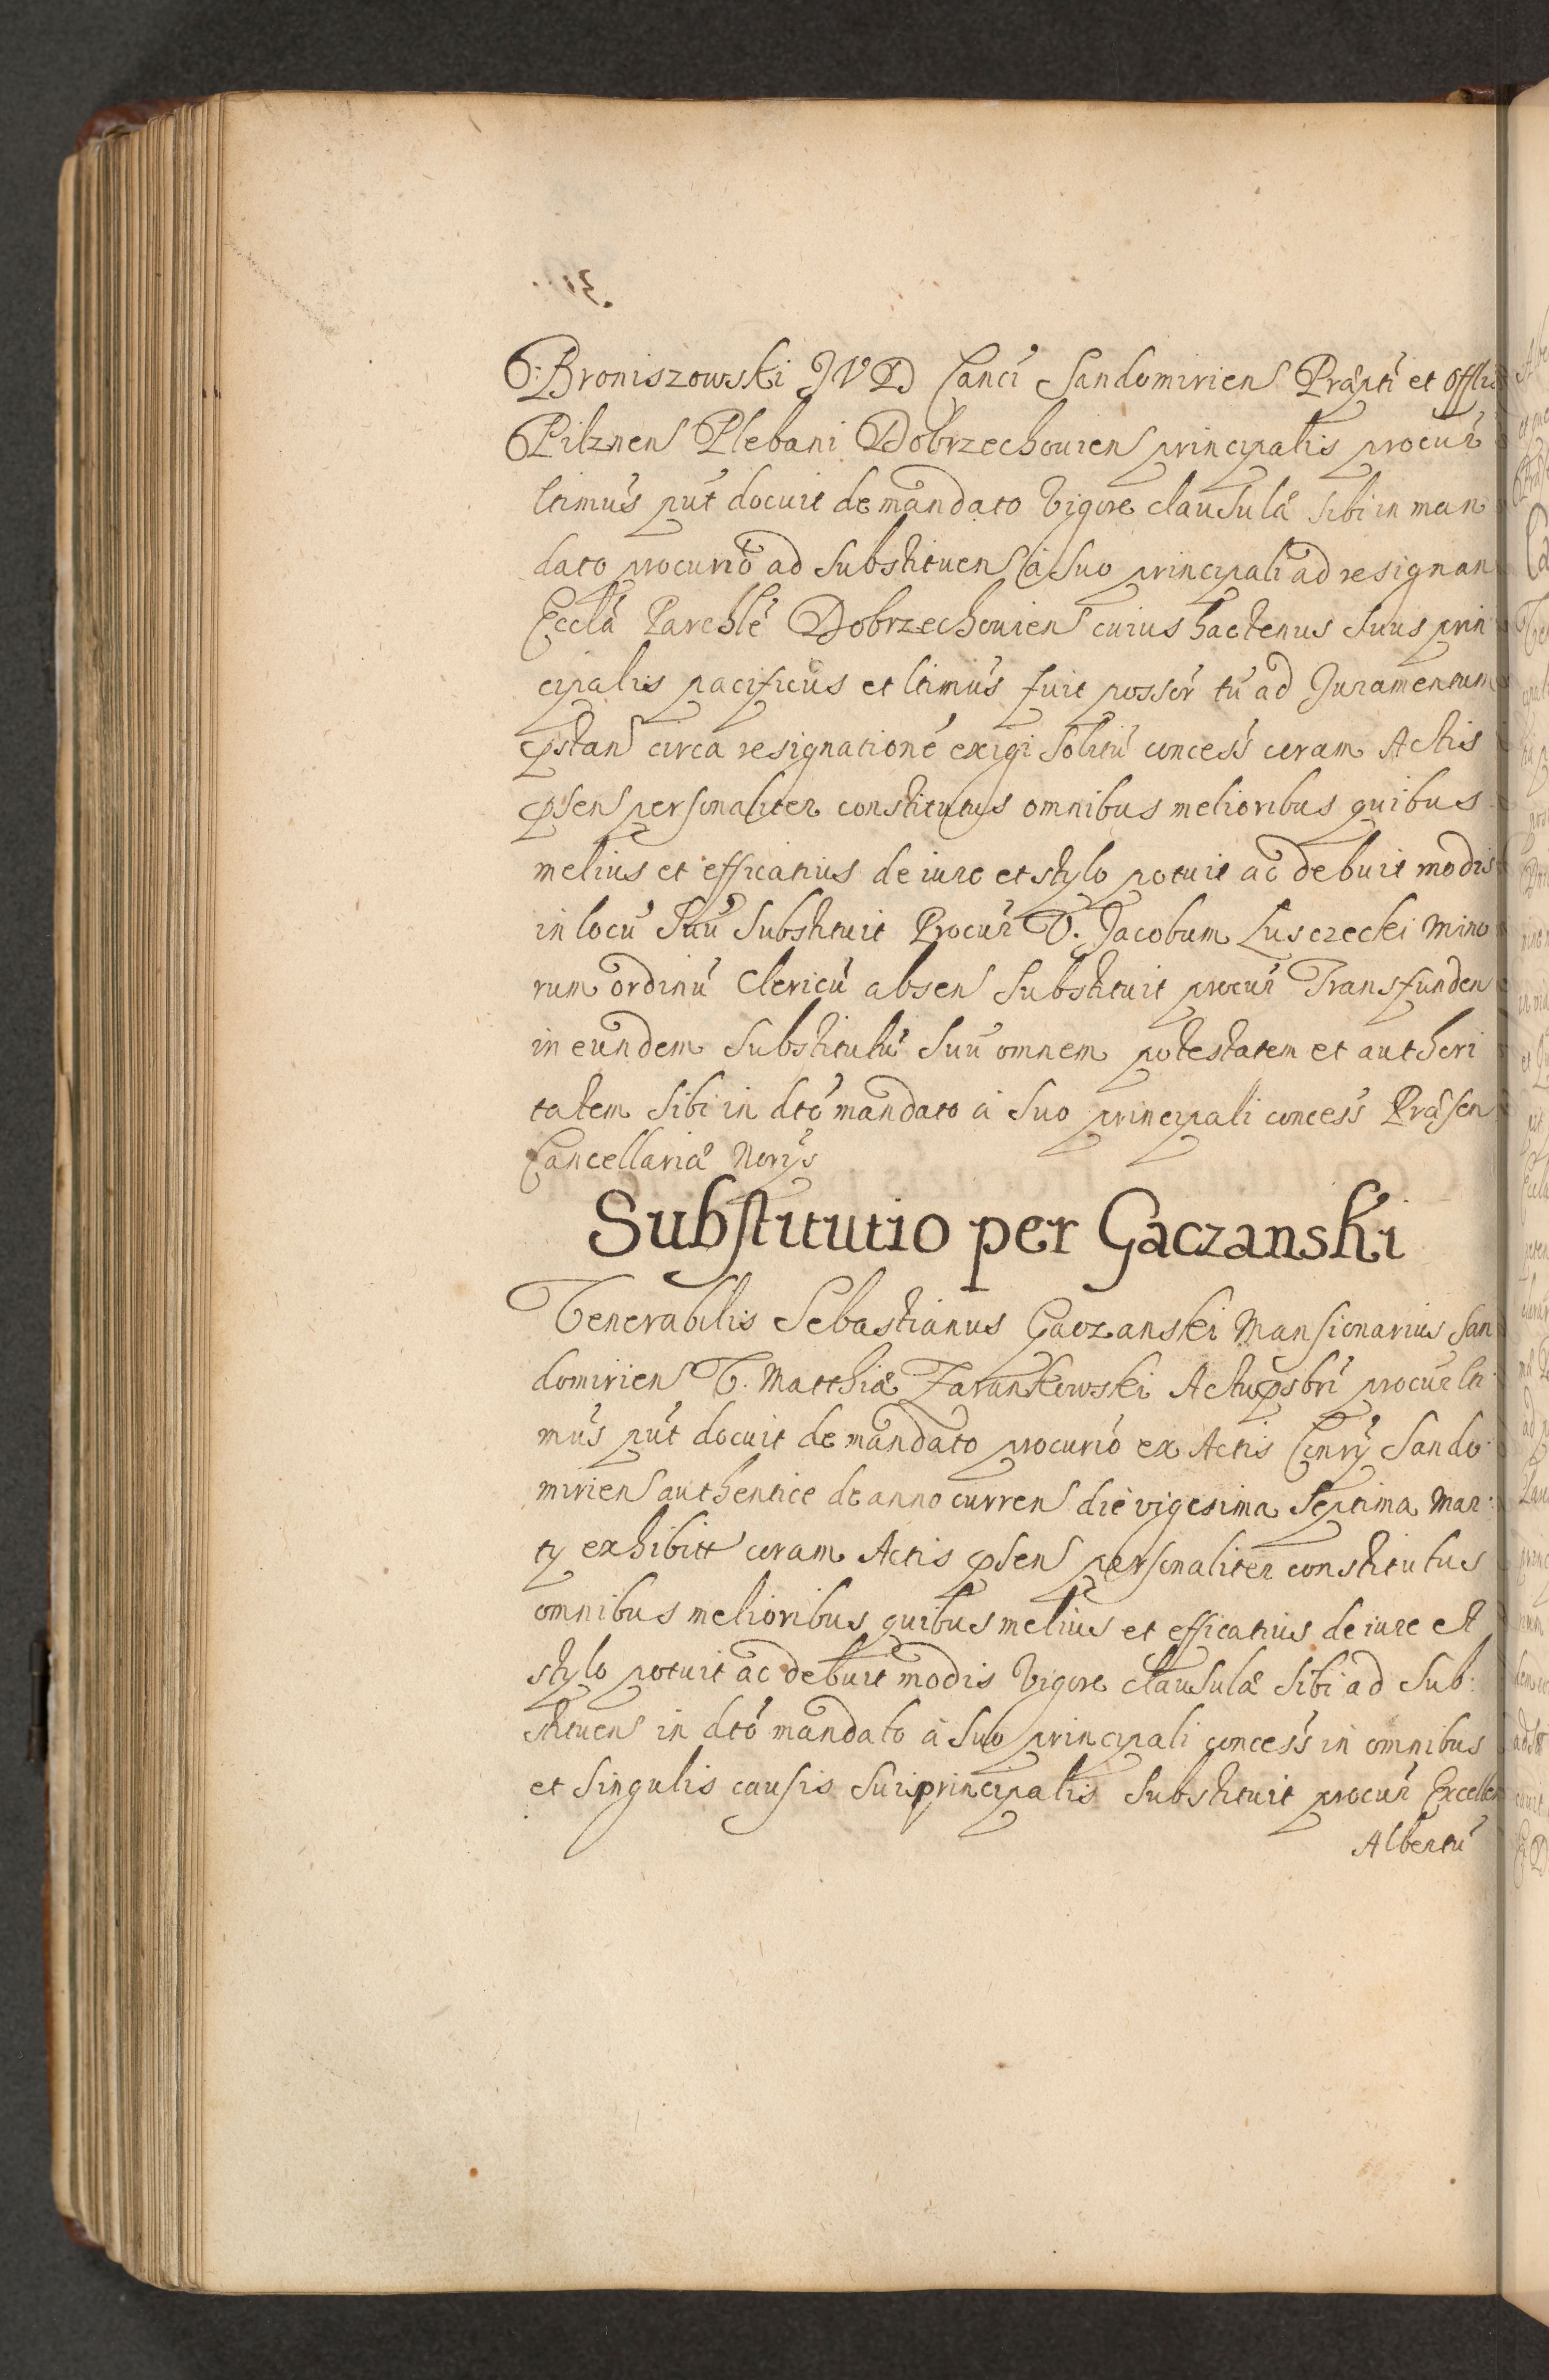 Broniszowski JVD Canci Sandomirien Præpti et Offlis
Pilznen Plebani Dobrzechouien principalis procur
ltimus put docuit de mandato vigore clausulæ sibi in man
dato procurio ad substituen a suo principali ad resignan
Ecclã Parchlẽ Dobrzechouien cuius hactenus suus prin
cipalis pacificus et ltimus fuit possor tũ ad Juramentum
pstan circa resignationẽ exigi solitũ concess coram Actis
psen personaliter constitutus omnibus melioribus quibus
melius et efficatius de iure et stylo potuit ac debuit modis
in locũ suũ substituit Procur V. Jacobum Lusczecki Mino
rum ordinũ Clericũ absen substituit procur Transfunden
in eundem substitutũ suũ omnem potestatem et authori
tatem sibi in dto mandato a suo principali concess Præsen
Cancellariæ Norijs
Substitutio per Gaczanski
Venerabilis Sebastianus Gaczanski Mansionarius San
domirien V. Matthiæ Zarankowski Actu psbri procur lti
mus put docuit de mandato procurio ex Actis Consrij Sando
mirien authentice de anno curren die vigesima septima Mar:
tij exhibitt coram Actis psen personaliter constitutus
omnibus melioribus quibus melius et efficatius de iure et
stylo potuit ac debuit modis vigore clausulæ sibi ad sub:
stituen in dto mandato a suo principali concess in omnibus
et singulis causis sui principalis substituit procur Excellen
Albertũ